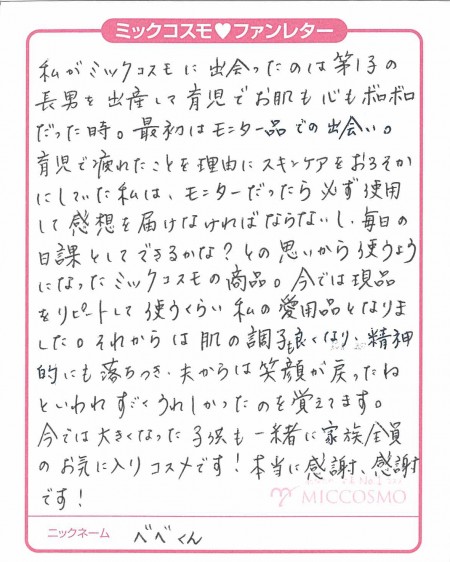 ミックコスモ♥ファンレター
私がミックコスモに出会ったのは第1子の
長男を出産して育児でお肌も心もボロボロ
だった時。最初はモニター品での出会い。
育児で疲れたことを理由にスキンケアをおろそか
にしていた私は、モニターだったら必ず使用
して感想を届けなければならないし、毎日の
日課としてできるかな?との思いから使うよう
になったミックコスモの商品。今では現品
をリピートして使うくらい私の愛用品となりま
した。それからは肌の調子も良くなり、精神
的にも落ちつき、夫からは笑顔が戻ったね
といわれすごくうれしかったのを覚えてます。
今では大きくなった子供も一緒に家族全員
のお気に入りコスメです!本当に感謝、感謝
です!
MICCOSMO
ニックネーム べべくん